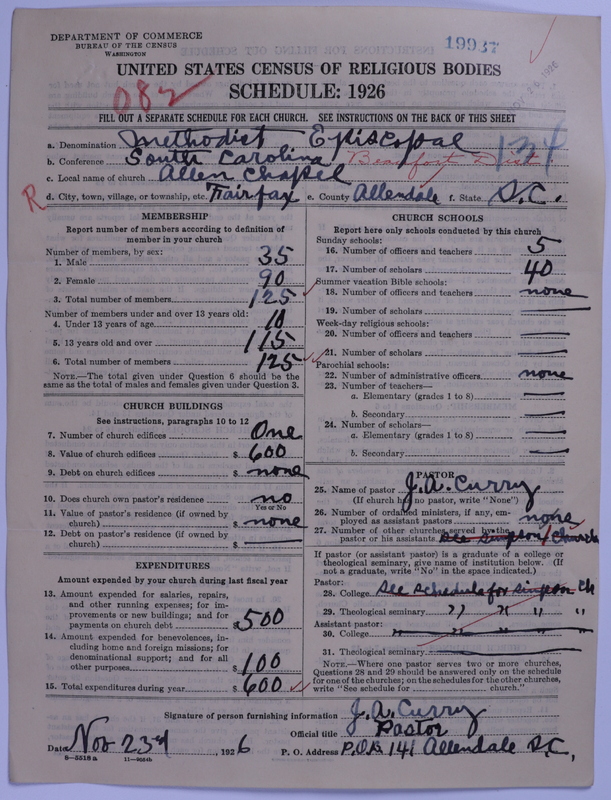 DEPARTMENT OF COMMERCE
BUREAU OF THE CENSUS
WASHINGTON
19937
NOV 26 1926
UNITED STATES CENSUS OF RELIGIOUS BODIES
082
SCHEDULE: 1926
FILL OUT A SEPARATE SCHEDULE FOR EACH CHURCH. SEE INSTRUCTIONS ON THE BACK OF THIS SHEET
a. Denomination Methodist Episcopal 134
b. Conference South Carolina Beaufort Dist
c. Local name of church Allen Chapel
R d. City, town, village, or township, etc. Fairfax e. County Allendale f. State S.C.
MEMBERSHIP
Report number of members according to definition of
member in your church
Number of members, by sex:
1. Male 35
2. Female 90
3. Total number of members 125
Number of members under and over 13 years old:
4. Under 13 years of age 10
5. 13 years old and over 115
6. Total number of members 125
NOTE.—The total given under Question 6 should be the
same as the total of males and females given under Question 3.
CHURCH BUILDINGS
See instructions, paragraphs 10 to 12
7. Number of church edifices One
8. Value of church edifices $ 600
9. Debt on church edifices $ none
10. Does church own pastor's residence no
Yes or No
11. Value of pastor's residence (if owned by
church) $ none
12. Debt on pastor's residence (if owned by
church) $
EXPENDITURES
Amount expended by your church during last fiscal year
13. Amount expended for salaries, repairs,
and other running expenses; for im-
provements or new buildings; and for
payments on church debt $ 500
14. Amount expended for benevolences, in-
cluding home and foreign missions; for
denominational support; and for all
other purposes $ 100
15. Total expenditures during year $ 600
CHURCH SCHOOLS
Report here only schools conducted by this church
Sunday schools:
16. Number of officers and teachers 5
17. Number of scholars 40
Summer vacation Bible schools:
18. Number of officers and teachers none
19. Number of scholars
Week-day religious schools:
20. Number of officers and teachers
21. Number of scholars
Parochial schools:
22. Number of administrative officers none
23. Number of teachers—
a. Elementary (grades 1 to 8)
b. Secondary
24. Number of scholars—
a. Elementary (grades 1 to 8)
b. Secondary
PASTOR
25. Name of pastor J. A. Curry
(If church has no pastor, write "None")
26. Number of ordained ministers, if any, em-
ployed as assistant pastors none
27. Number of other churches served by the
pastor or his assistants See Simpson Church
If pastor (or assistant pastor) is a graduate of a college or
theological seminary, give name of institution below. (If
not a graduate, write "No" in the space indicated.)
Pastor:
28. College See Schedule for Simpson Ch
29. Theological seminary " " " "
Assistant pastor:
30. College
31. Theological seminary
NOTE.—Where one pastor serves two or more churches,
Questions 28 and 29 should be answered only on the schedule
for one of the churches; on the schedules for the other churches,
write "See schedule for church."
Signature of person furnishing information J. A. Curry
Official title Pastor
Date Nov 23rd, 1926 P. O. Address P.O.B 141 Allendale S.C.
8—5518 a 11—9034b